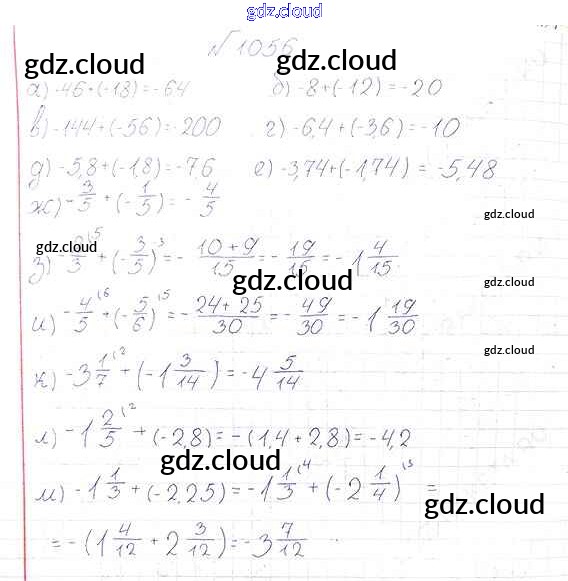 gdz.cloud
№ 1056
gdz.cloud gdz.cloud
а) -46+(-18)=-64 б) -8+(-12)=-20
в) -144+(-56)=-200 г) -6,4+(-3,6)=-10
д) -5,8+(-1,8)=-7,6 е) -3,74+(-1,74) = -5,48
ж) -3/5 + (-1/5) = -4/5 gdz.cloud
gdz.cloud
з) -2/3 (5 + (-3/5) (3 = -(10+9)/15 = -19/15 = -1 4/15
gdz.cloud gdz.cloud
и) -4/5 (6 + (-5/6) (5 = -(24+25)/30 = -49/30 = -1 19/30
gdz.cloud
к) -3 1/7 (2 + (-1 3/14) = -4 5/14
л) -1 2/5 (2 + (-2,8) = -(1,4+2,8) = -4,2
gdz.cloud
м) -1 1/3 + (-2,25) = -1 1/3 (4 + (-2 1/4) (3 =
gdz.cloud
= -(1 4/12 + 2 3/12) = -3 7/12